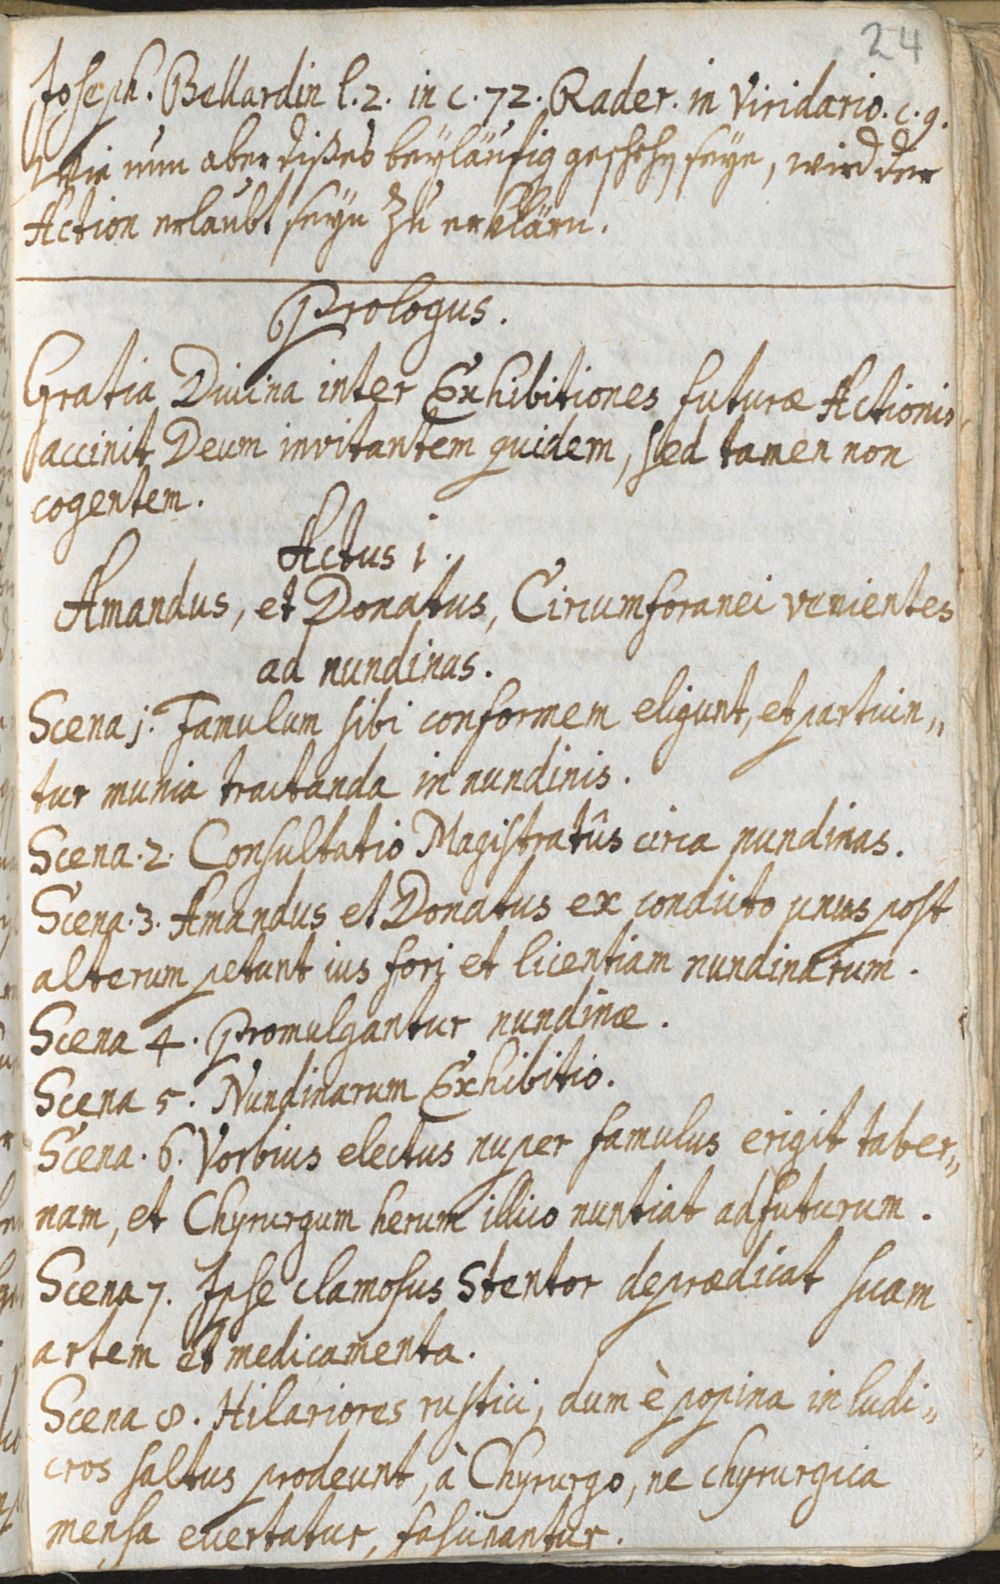 24
Joseph. Bellardin l. 2. in c. 72. Rader. in Viridario. c. 9.
Wie nun aber dißes beyläufig geschehen seye, wird der
Action erlaubt seyn zu erklärn.
Prologus.
Gratia Divina inter Exhibitiones futuræ Actionis,
accinit Deum invitantem quidem, sed tamen non
cogentem.
Actus i.
Amandus, et Donatus, Circumforanei venientes
ad nundinas.
Scena j. Famulum sibi conformem eligunt, et partiun„
tur munia tractanda in nundinis.
Scena. 2. Consultatio Magistratûs circa nundinas.
Scena. 3. Amandus et Donatus ex conducto unus post
alterum petunt ius forj et licentiam nundinarum.
Scena 4. Promulgantur nundinæ.
Scena 5. Nundinarum Exhibitio.
Scena. 6. Vorbius electus nuper famulus erigit taber„
nam, et Chyrurgum herum illico nuntiat adfuturum.
Scena 7. Ipse clamosus Stentor deprædicat suam
artem et medicamenta.
Scena 8. Hilariores rustici, dum è popina in ludi„
cros saltus prodeunt, à Chyrurgo, ne chyrurgica
mensa evertatur, fascinantur.